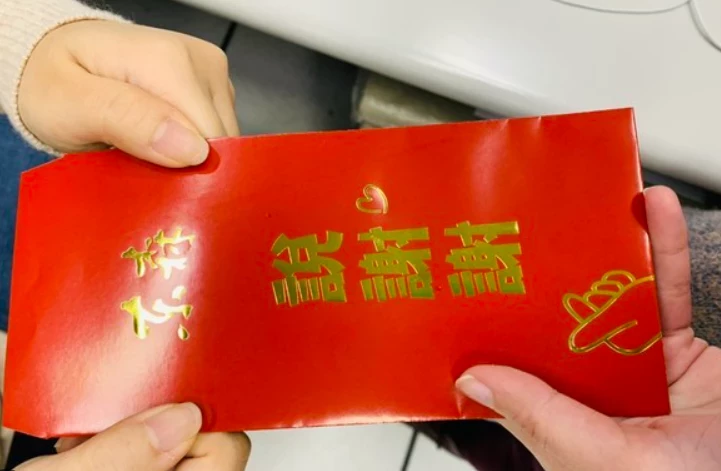 說謝謝